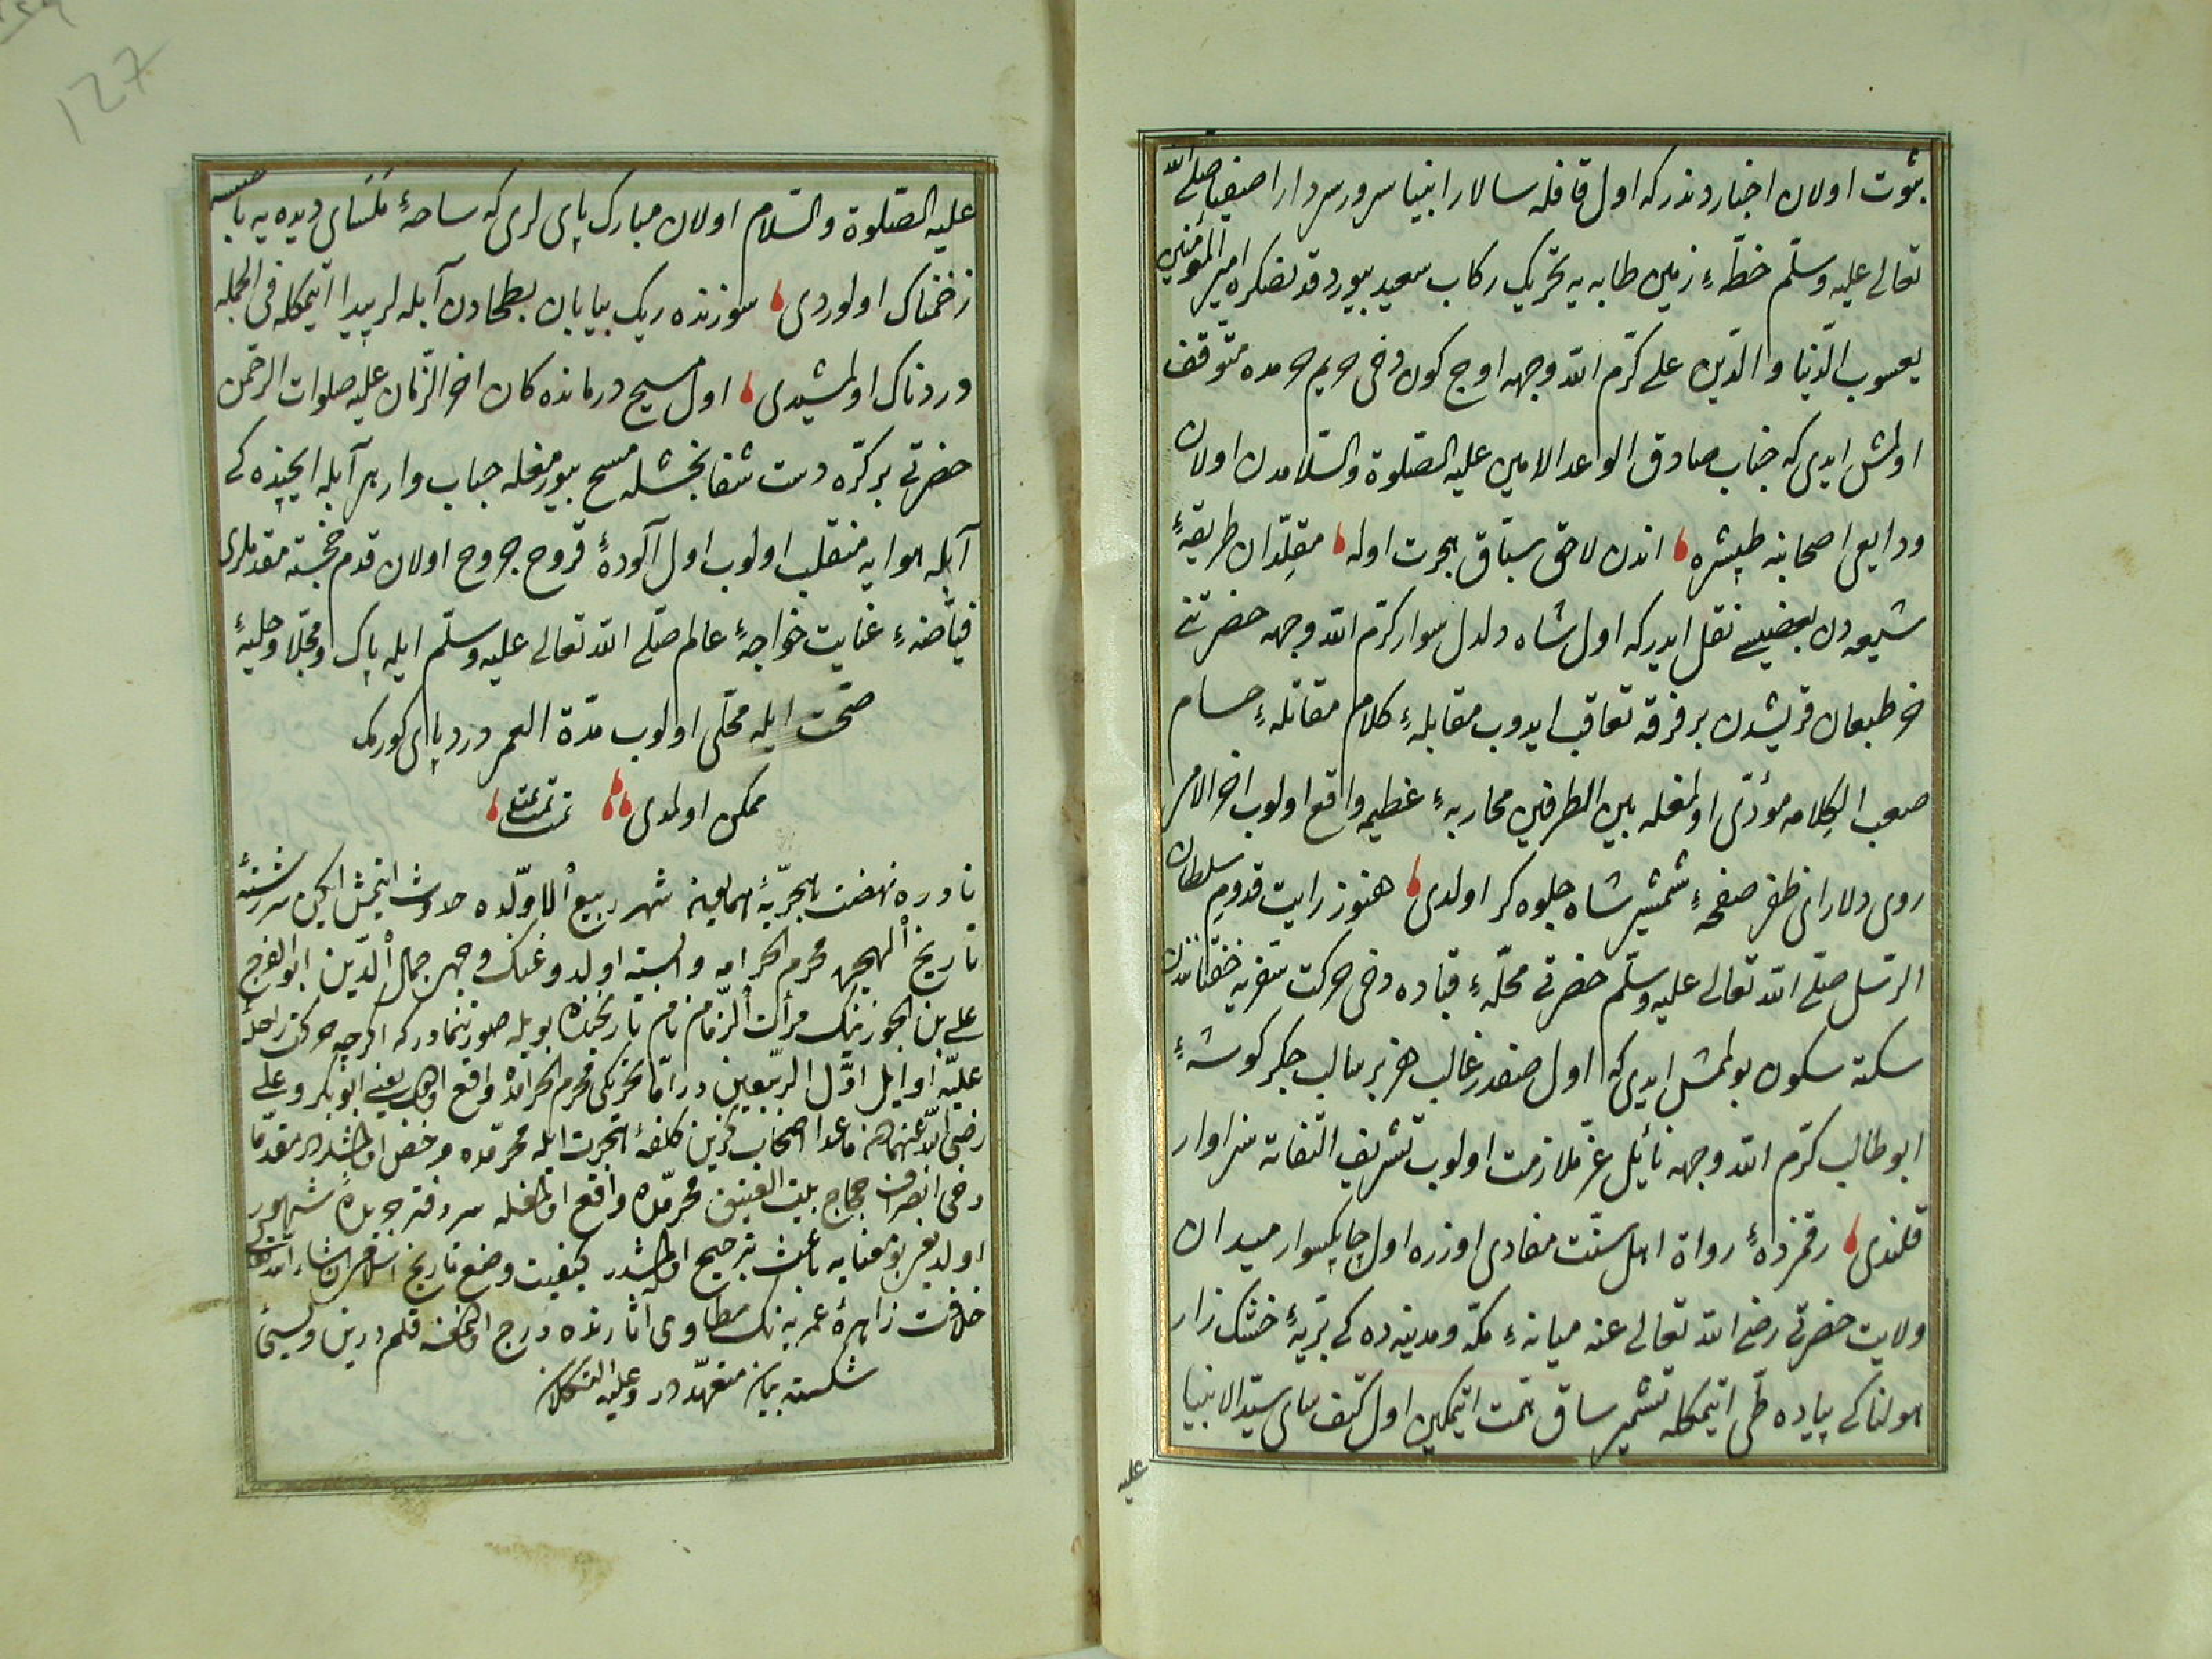 ثبوت اولان اخباردندركه اول قافله سالار انبيا سرور سردار اصفيا صلى الله
تعالى عليه وسلّم خطّهٔ زمين طابه يه تحريك ركاب سعيد بيوردقدنصكره امير المؤمنين
يعسوب الدّنيا والدّين على كرّم الله وجهه اوج كون دخى حريم حرمده متوقف
اولمش ايدى كه جناب صادق الواعد الامين عليه الصّلوة والسّلامدن اولان
ودايعى اصحابنه طپشره اندن لاحق سبّاق هجرت اوله مقلّدان طريقهٔ
شيعه دن بعضيسى نقل ايدركه اول شاه دلدل سوار كرّم الله وجهه حضرتنى
خر طبعان قريشدن بر فرقه تعاقب ايدوب مقابلهٔ كلام مقاتلهٔ حسام
صعب الكلامه مؤدّى اولمغله بين الطرفين محاربهٔ عظيمه واقع اولوب اخر الامر
روى دلاراى ظفر صفحهٔ شمشير شاه جلوه كر اولدى هنوز رايت قدوم سلطان
الرّسل صلّى الله تعالى عليه وسلّم حضرتى محلّهٔ قباده دخى حركت سفريه خفقانندن
سكته سكون بولمش ايدى كه اول صفدر غالب هزبر سالب جكر كوشهٔ
ابو طالب كرّم الله وجهه نائل عزّ ملازمت اولوب تشريف التفاته سزاوار
قلندى رقمزدهٔ رواة اهل سنّت مفادى اوزره اول چابكسوار ميدان
ولايت حضرتى رضى الله تعالى عنه ميانهٔ مكّه ومدينه ده كى برّيهٔ خشك زار
هولناكى پياده طى اتيمكله تشمير ساق همّت اتيمكين اول كتف ساى سيّد الانبيا
عليه
عليه الصّلوة والسّلام اولان مبارك پاى لرى كه ساحهٔ تنكناى ديده يه باصسه
زخمناك اولوردى سوزنده ريك بيابان بطحادن آبله لر پيدا اتيمكله فى الجمله
دردناك اولمشيدى اول مسيح درمانده كان اخر الزمان عليه صلوات الرّحمن
حضرتى بر كرّه دست شفا بخشله مسح بيورمغله حباب وار هر آبله ايچنده كى
آبله هوايه منقلب اولوب اول آلودهٔ قروح جروح اولان قدم خجسته مقدملرى
فيّاضهٔ عنايت خواجهٔ عالم صلّى الله تعالى عليه وسلّم ايله پاك ومجلّا وحليهٔ
صحّت ايله محلّى اولوب مدّة العمر درد پاى كورمك
ممكن اولمدى تمت تمت
نادره نهضت هجريّهٔ همايون شهر ربيع الاوّلده حدوث ايتمش ايكن سررشتهٔ
تاريخ الهجره محرم الحرامه وابسته اولدوغنك وجهى جمال الدّين ابو الفرج
على بن الجوزينك مرأت الزّمان نام تاريخنده بويله صورتنمادركه اكرچه حركت راحلهٔ
عليّه اوايل اوّل الرّبيعين در امّا تحريكى محرم الحرامده واقع اولوب يعنى ابو بكر وعلى
رضى الله عنهمادن ماعدا اصحاب كزين كلفهٔ هجرت ايله محرّمده مرخص اولمشلردر مقدّما
دخى انصراف حجاج بيت العتيق محرّمده واقع اولمغله سر دفتر جريدهٔ شهور
اولديغى بومعنايه باعث ترجيح اولمشدر كيفيت وضع تاريخ اسلام ان شاء الله تعالى
خلافت زاهرهٔ عمريه نك مطاوى آثارنده درج اولنمه قلم درين ولسان
شكسته بيان متعهّددر وعليه التكلان
127